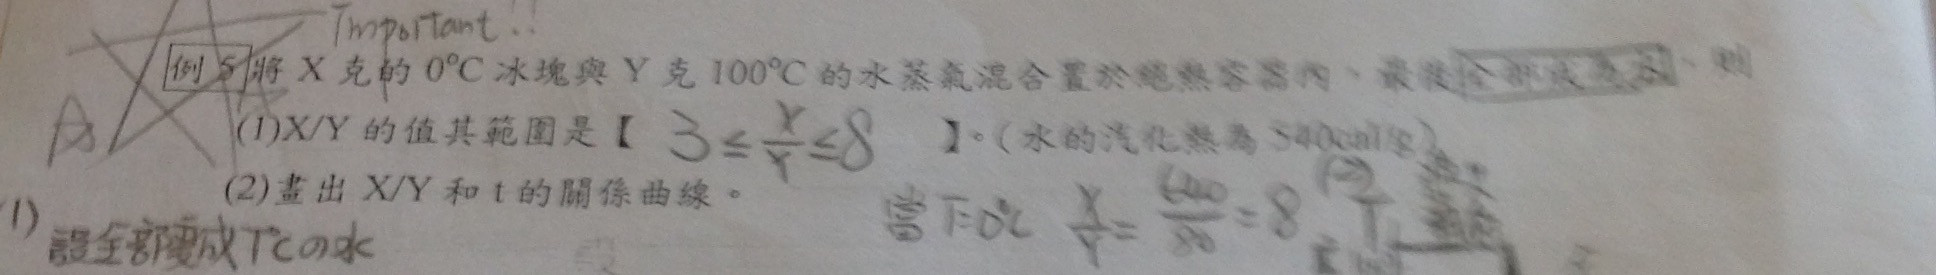 Important!!
例 5 將 X 克的 0°C 冰塊與 Y 克 100°C 的水蒸氣混合置於絕熱容器內、最後全部成為水、則
(1)X/Y 的值其範圍是【 3≤X/Y≤8 】。(水的汽化熱為 540cal/g)
(2)畫出 X/Y 和 t 的關係曲線。
當T=0℃ X/Y=640/80=8 (2)
(1)
設全部變成T℃の水